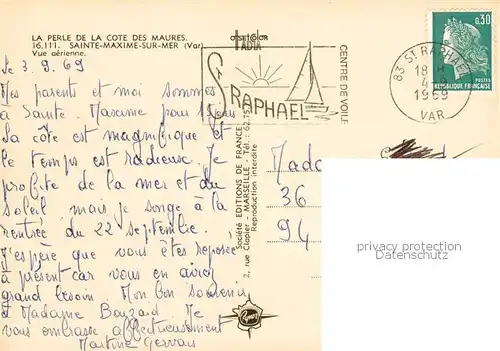 LA PERLE DE LA COTE DES MAURES.
16.111. SAINTE-MAXIME-SUR-MER (Var)
Vue aérienne.
le 3.9.69
Mes parents et moi sommes
à Sainte. Maxime pour
La côte est magnifique et
le temps est radieuse. Je
profite de la mer et du
soleil mais je songe à la
rentrée du 22 septembre.
J'espère que vous êtes reposée
à présent car vous en aviez
grand besoin. Mon bon souvenir
à Madame Bouzard. Je
vous embrasse affectueusement
Martine Gervais
ST RAPHAEL
CENTRE DE VOILE
0,30
POSTES
REPUBLIQUE FRANÇAISE
83 ST RAPHAEL
18 H
4-9
1969
VAR
Société EDITIONS DE FRANCE
2, rue Clapier - MARSEILLE - Tél. : 62.75
Reproduction interdite
Mada
36
94
privacy protection
Datenschutz